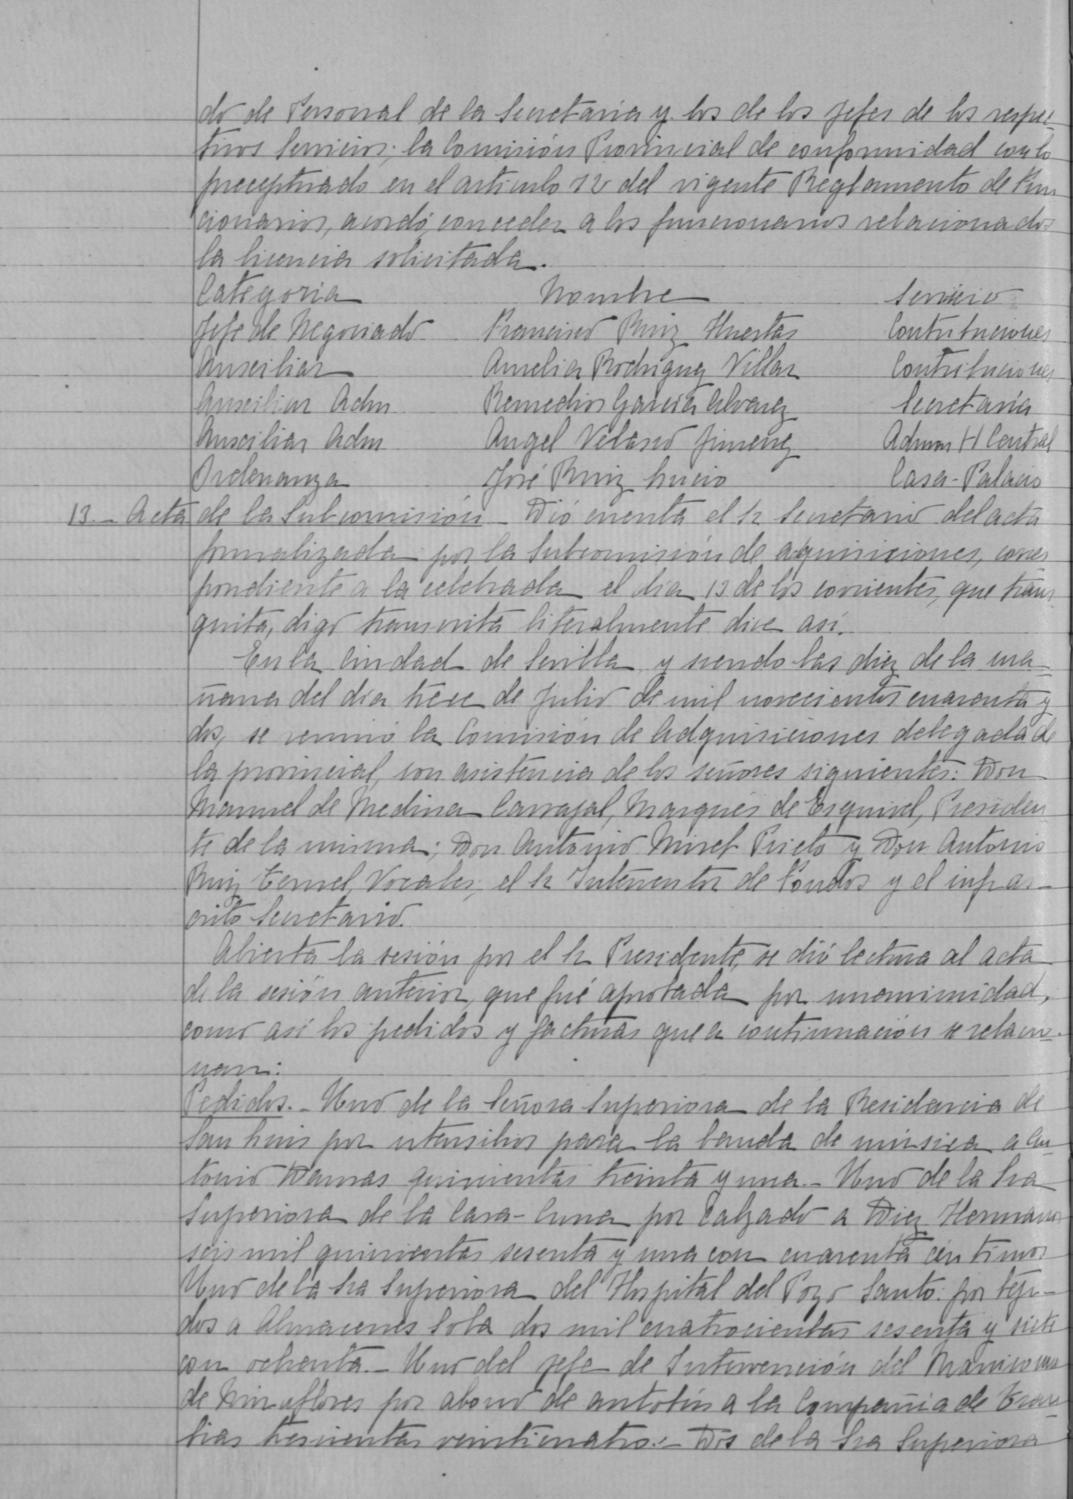 do de Personal de la Secretaría y los de los Jefes de los respec-
tivos Servicios; la Comisión Provincial de conformidad con lo
preceptuado en el artículo 12 del vigente Reglamento de Fun
cionarios, acordó conceder a los funcionarios relacionados
la licencia solicitada.
Categoria Nombre Servicio
Jefe de Negociado Francisco Ruiz Huertas Contribuciones
Auxiliar Amelia Rodriguez Villar Contribuciones
Auxiliar Adm Remedios García Alvarez Secretaría
Auxiliar Adm Angel Velasco Jimenez Admon H Central
Ordenanza José Ruiz Lucio Casa-Palacio
13.- Acta de la Subcomisión - Dió cuenta el Sr Secretario del acta
formalizada por la Subcomisión de adquisiciones, corres
pondiente a la celebrada el dia 13 de los corrientes, que trans
quita, digo transcrita literalmente dice así.
En la Ciudad de Sevilla y siendo las diez de la ma-
ñana del dia trece de Julio de mil novecientos cuarenta y
dos, se reunió la Comisión de Adquisiciones delegada de
la provincial, con asistencia de los señores siguientes: Don
Manuel de Medina Carvajal, Marqués de Esquivel, Presiden
te de la misma; Don Antonio Prieto y Don Antonio
Ruiz Vocales, el Sr Interventor de Fondos y el infras-
crito Secretario.
Abierta la sesión por el Sr Presidente, se dió lectura al acta
de la sesión anterior, que fué aprobada por unanimidad,
como así los pedidos y facturas que a continuación se relacio-
nan:
Pedidos.- Uno de la Señora Superiora de la Residencia de
San Luis por utensilios para la banda de música a An
tonio Damas quinientas treinta y una.- Uno de la Sra
Superiora de la Casa-Cuna por Calzado a Diez Hermanos
seis mil quinientas sesenta y una con cuarenta céntimos
Uno de la Sra Superiora del Hospital del Pozo Santo por teji-
dos a Almacenes dos mil cuatrocientas sesenta y siete
con ochenta.- Uno del Jefe de Intervención del Manicomio
de Miraflores por abono de autobús a la Compañia de Tran-
vias trescientas veinticuatro.- Dos de la Sra Superiora